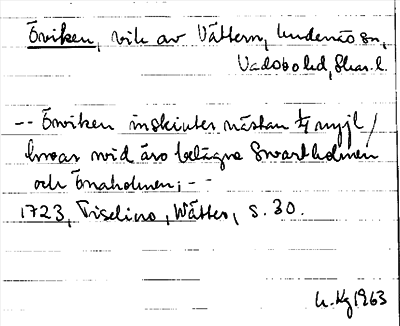 Öviken, vik av Vättern, Undenäs sn,
Vadsbo hd, Skar. l.
-- Öviken inskiuter nästan 1/4 myjl /
hwar wid äro belägne Swartholmen
och Önaholmen; --
1723, Tiselius, Wätter, s. 30.
1963